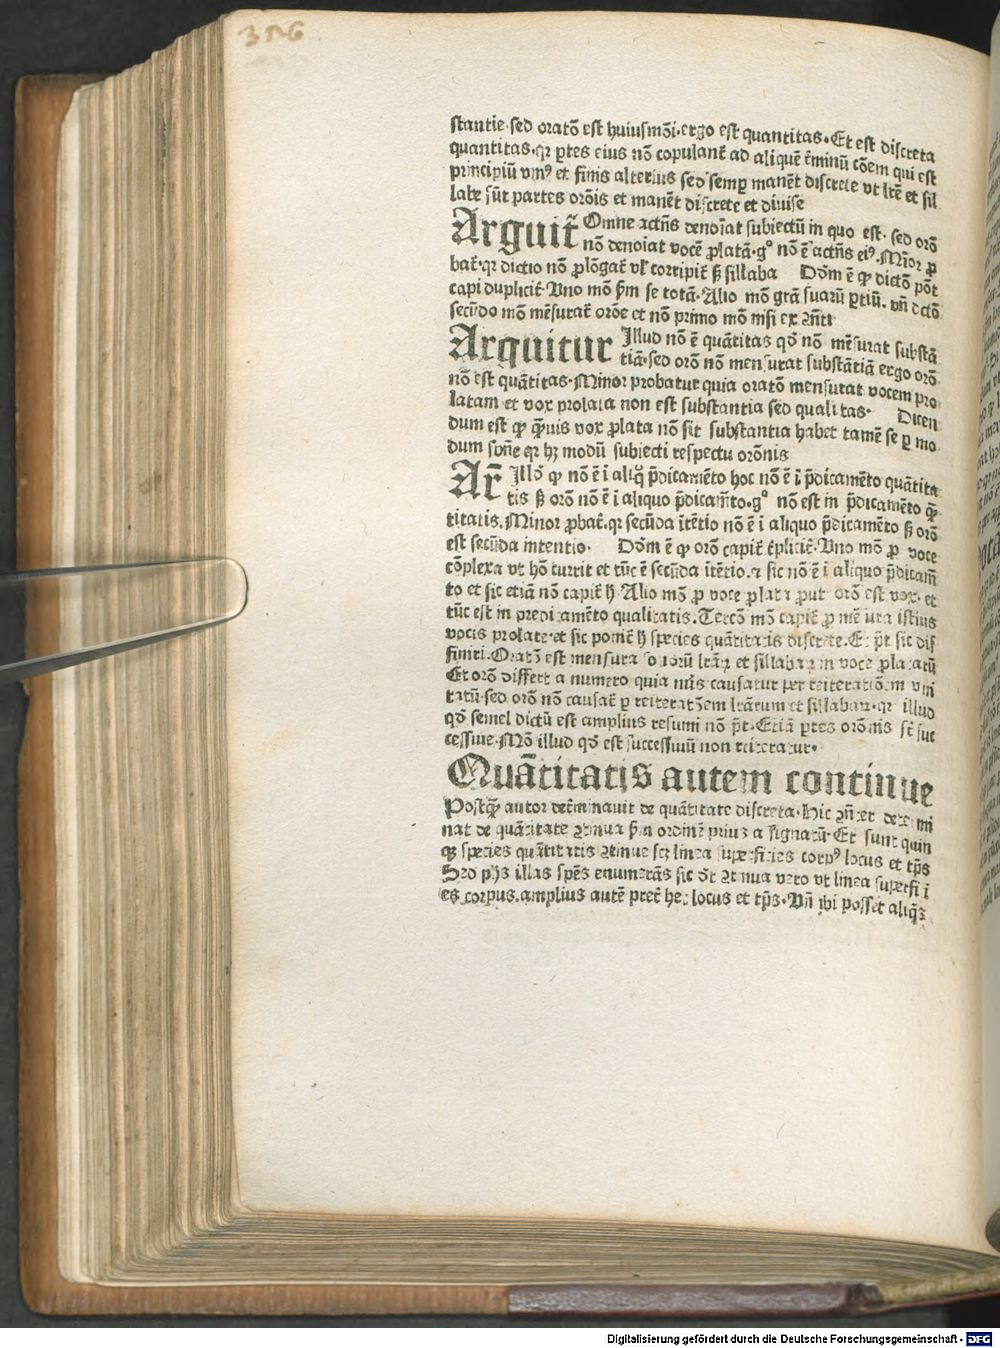 stantie.sed oratõ est huiusmõi.ergo est quantitas.Et est discreta
quantitas.qr ptes eius nõ copulant̃ ad aliquẽ t̃minũ cõem qui est
principiũ vniꝰ et finis alterius sed semꝑ manẽt discrete vt lr̃e et sil
labe sũt partes orõis et manẽt discrete et diuise
Arguit̃ Omne actñs denoĩat subiectũ in quo est. sed orõ
nõ denoĩat vocẽ ꝓlatã.gº nõ ẽ actñs eiꝰ.Mĩor ꝓ
bat̃.qr dictio nõ ꝓlõgat̃ vl̃ corripit̃ ß sillaba Dõm ẽ ꝙ dictõ põt
capi duplicit̃.Uno mõ ẜm se totã.Alio mõ grã suarũ ꝑtiũ. vñ dctõ
secũdo mõ mẽsurat̃ orõe et nõ primo mõ nisi ex ꝯñti
Arguitur Illud nõ ẽ quãtitas qd̃ nõ mẽsurat substã
tiã.sed orõ nõ mensurat substãtiã ergo orõ
nõ est quãtitas.Minor probatur quia oratõ mensurat vocem pro
latam et vox prolata non est substantia sed qualitas. Dicen
dum est ꝙ q̃uis vox ꝓlata nõ sit substantia habet tamẽ se ꝑ mo
dum sbñe qr hꝫ modũ subiecti respectu orõnis
Ar̃ Illd̃ ꝙ nõ ẽ i aliq̃ p̃dicamẽto hoc nõ ẽ i p̃dicamẽto quãtita
tis ß orõ nõ ẽ i aliquo p̃dicam̃to.gº nõ est in p̃dicamẽto q̃
titatis.Minor ꝓbat̃.qr secũda ĩtẽtio nõ ẽ i aliquo p̃dicamẽto ß orõ
est secũda intentio. Dõm ẽ ꝙ orõ capit̃ t̃plicit̃.Uno mõ ꝓ voce
cõplexa vt hõ currit et tũc ẽ secũda ĩtẽtio.⁊ sic nõ ẽ i aliquo p̃dicam̃
to et sic etiã nõ capit̃ h̃ Alio mõ ꝓ voce ꝓlata ꝓut orõ est vox. et
tũc est in predicamẽto qualitatis.Tercõ mõ capit̃ ꝓ mẽsura istius
vocis prolate.et sic ponit̃ h̃ species quãtitatis discrete.Et p̃t sic dif
finiri.Oratõ est mensura sonorũ lr̃aꝝ et sillabaꝝ in voce ꝓlataꝝ
Et orõ differt a numero quia nũs causatur per reiterationem vni
tatũ.sed orõ nõ causat̃ ꝑ reiteratõem lr̃arum et sillabaꝝ.qr illud
qd̃ semel dictũ est amplius resumi nõ p̃t.Etiã ꝑtes orõnis sũt suc
cessiue.Mõ illud qd̃ est successiuũ non reiteratur.
Quãtitatis autem continue
Postq̃ autor det̃minauit de quãtitate discreta.Hic ꝯñter determi
nat de quãtitate ꝯtinua ẜm ordinẽ prius assignatũ.Et sunt quin
qꝫ species quãtitatis ꝯtinue scꝫ linea superficies corpꝰ locus et tp̃s
Sed phũs illas spẽs enumerãs sic dt̃ ꝯtinua vero vt linea superfi i
es corpus.amplius autẽ pret̃ hec locus et tp̃s.Uñ ibi posset aliq̃s